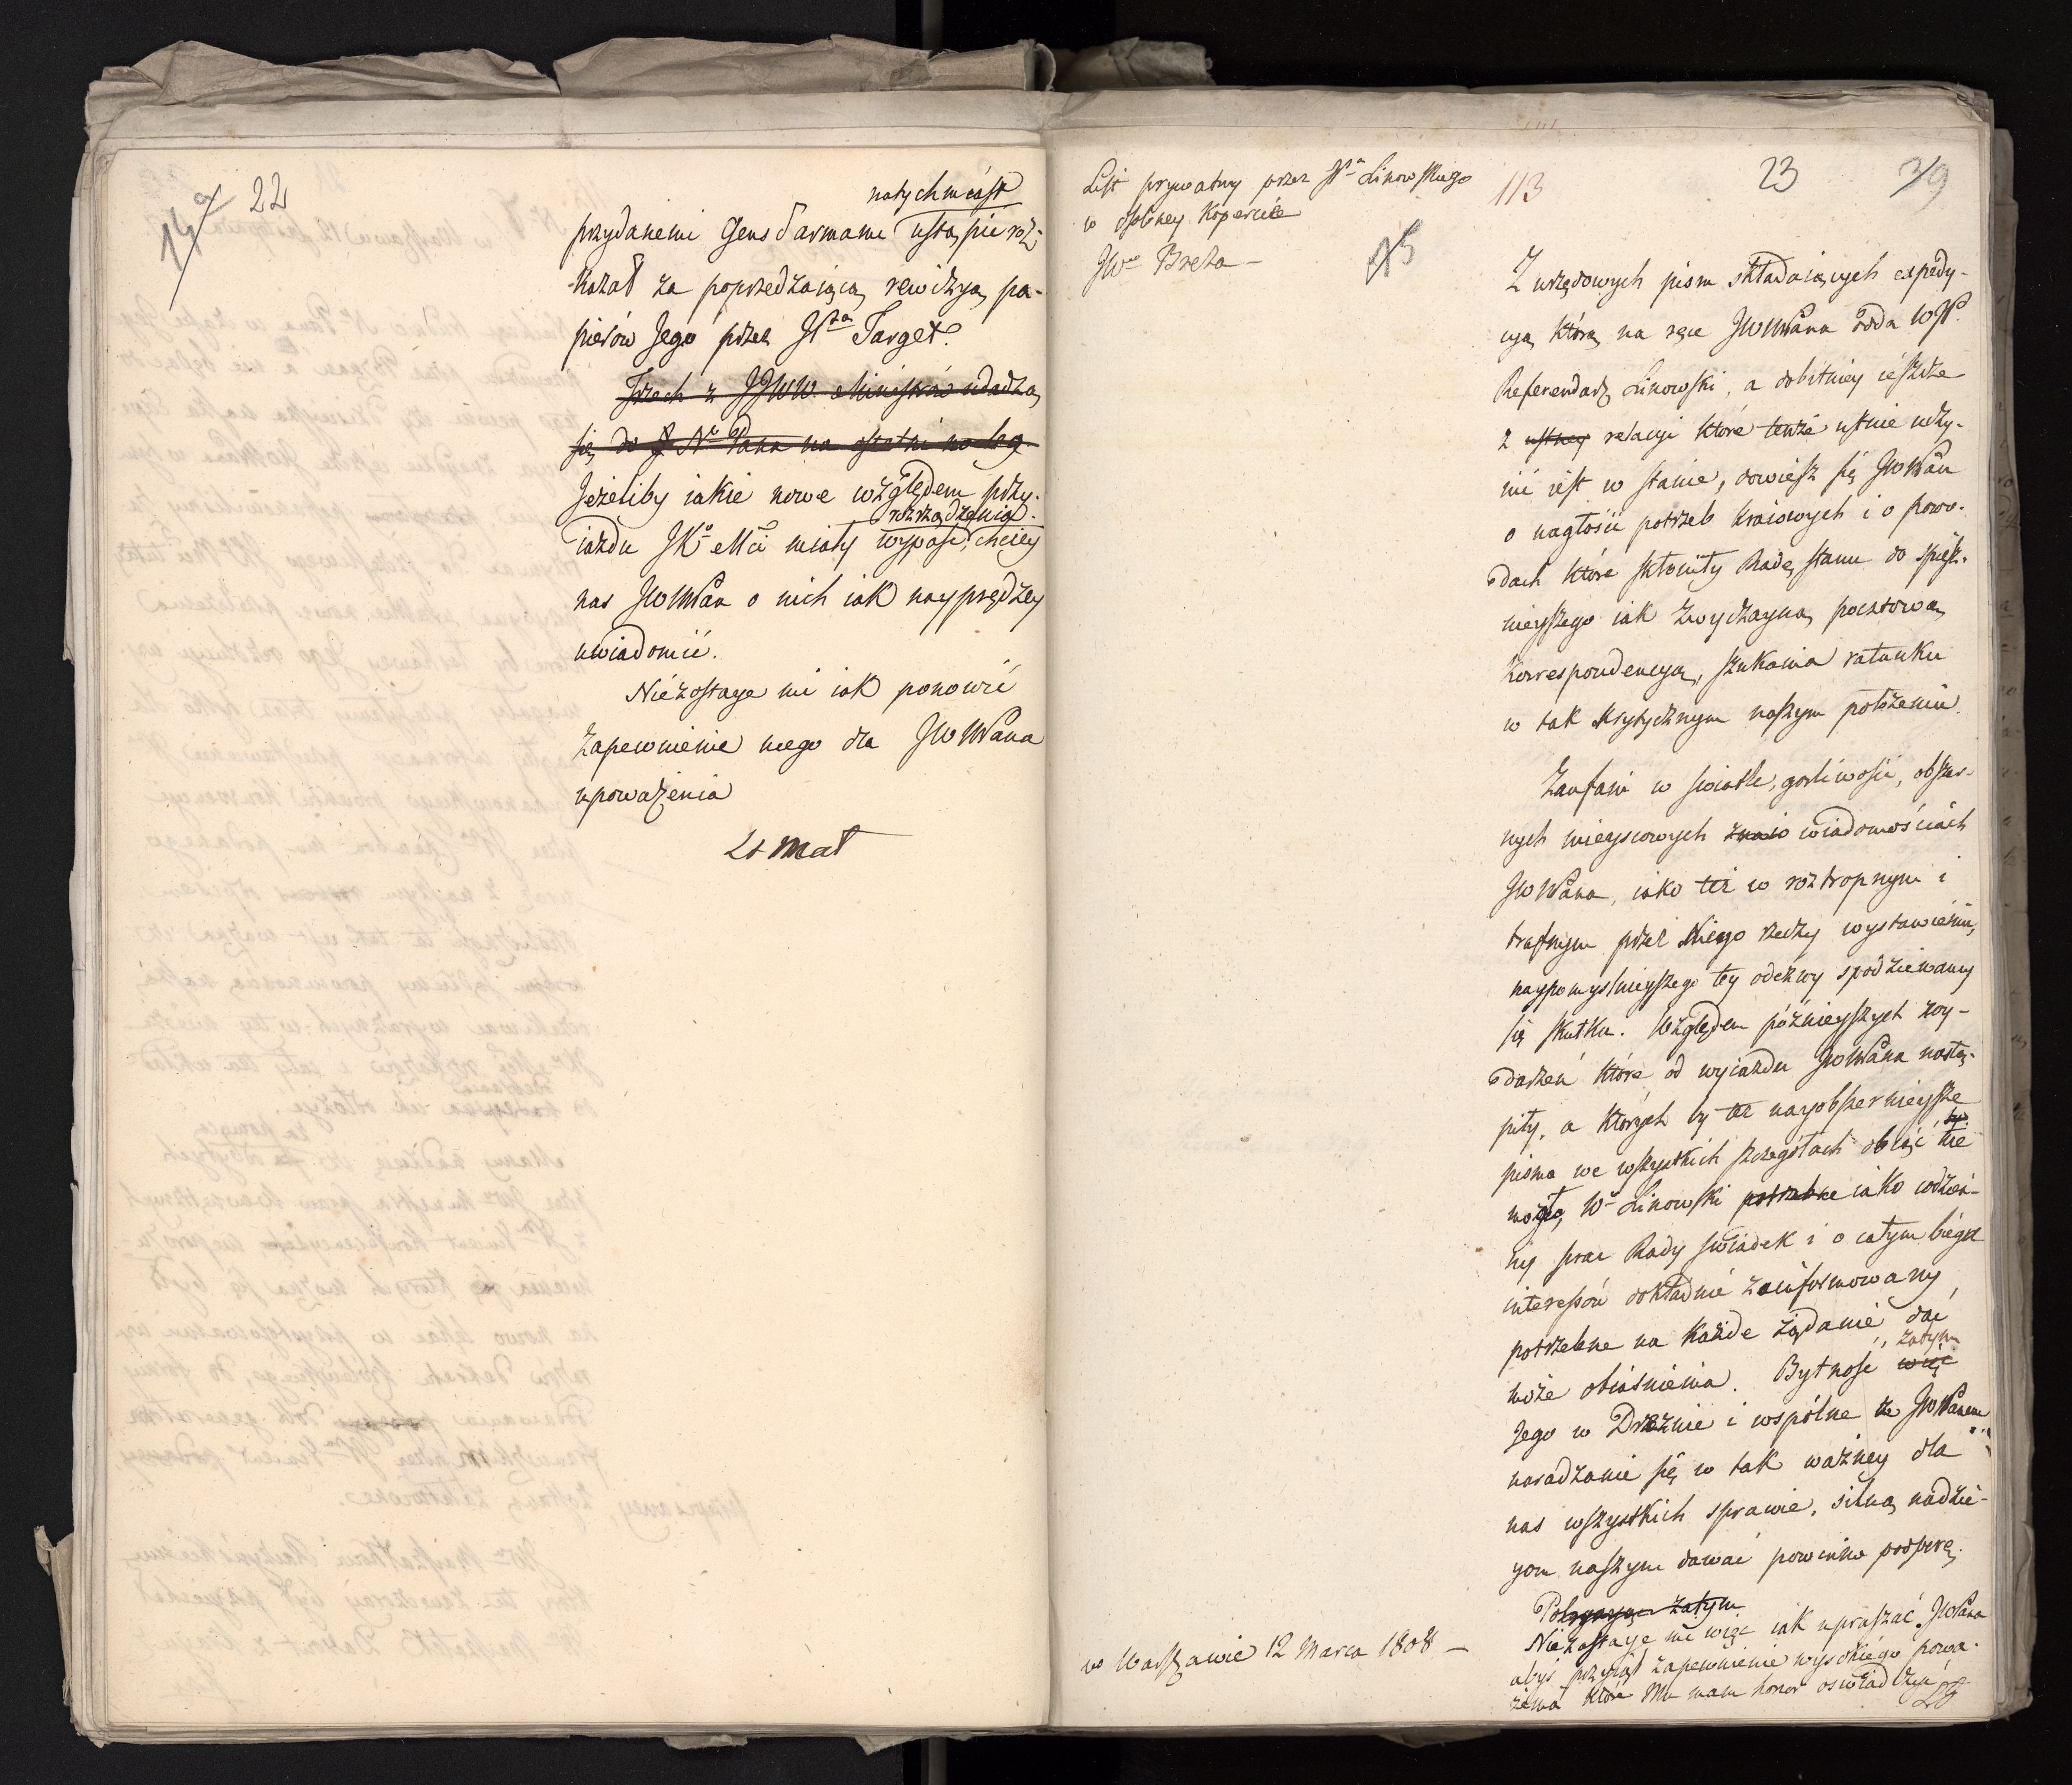 22
natychmiast
przydanemi Gens d'armami ustąpić roz-
kazał za poprzedzaiącą rewizyą pa-
pierów Jego przez JP. Target.
Trzech z JJWW. Ministrów udadzą
się do N. Pana na
Jeżeliby iakie nowe względem przy-
rozrządzenia
iazdu JK. Mci miały wypaść, chciey
nas JWWPan o nich iak nayprędzey
uwiadomić.
Niezostaye mi iak ponowić
zapewnienie mego dla JWWPana
upoważenia
List prywatny przez JP. Linowskiego
w osobney kopercie
JW. Breza
w Warszawie 12 Marca 1808 —
113
23
39
Z urzędowych pism składaiących expedy-
cyą którą na ręce JWWPana odda WJP.
Referendarz Linowski, a dobitniey ieszcze
z ustney relacyi które tenże ustnie uczy-
nić iest w stanie, dowiesz się JWWPan
o nagłości potrzeb kraiowych i o powo-
dach które skłoniły Radę stanu do spiesz-
nieyszego iak zwyczayną pocztową
korrespondencyą, szukania ratunku
w tak krytycznym naszym położeniu.
Zaufani w świetle, gorliwości, obszer-
nych mieyscowych wiadomościach
JWWPana, iako też w roztropnym i
trafnym przez Niego rzeczy wystawieniu,
naypomyślnieyszego tey odezwy spodziewamy
się skutku. Względem późnieyszych wy-
darzeń które od wyiazdu JWWPana nastą-
piły, a których by też nayobszernieysze
pisma we wszystkich szczegółach obiąć nie
mogły, W. Linowski potrzebne iako codzien-
ny prac Rady świadek i o całym biegu
interessów dokładnie zainformowany,
potrzebne na każde żądanie dać
zatym
może obiaśnienia. Bytność więc
Jego w Dreznie i wspólne ze JWWPanem
naradzanie się w tak ważney dla
nas wszystkich sprawie, silną nadzie-
yom naszym dawać powinno podporę.
zatym
Niezostaye mi więc iak upraszać JWPana
abyś przyiął zapewnienie wysokiego powa-
żenia które Mu mam honor oświadczyć